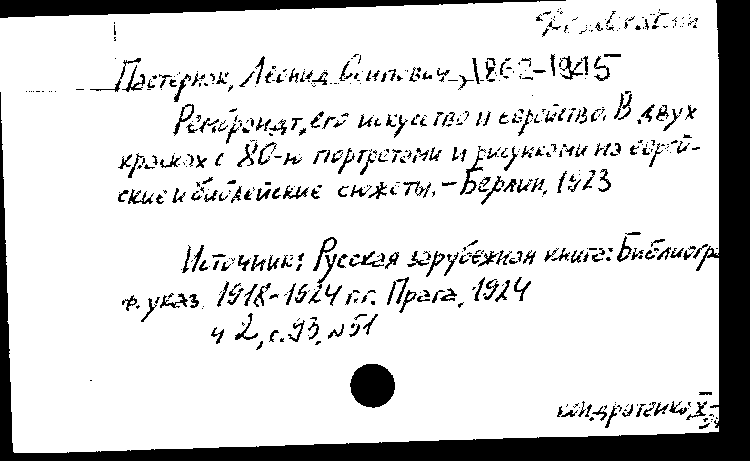 Пастернак, Леонид Осипович, 1862-1945
Рембрандт, его искусство и еврейство. В двух
красках с 80-ю портретами и рисунками на еврей-
ские и библейские сюжеты. - Берлин, 1923
Источник: Русская зарубежная книга: Библиогра
ф. указ. 1918-1924 г.г. Прага, 1924
ч 2, с. 93, №51
Кондратенко, X-